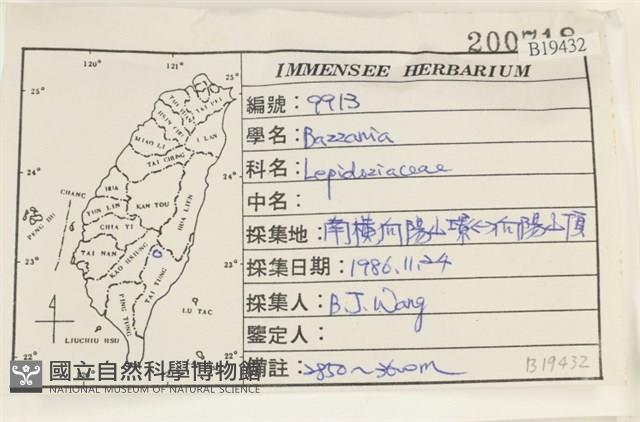 B19432
IMMENSEE HERBARIUM
編號：9913
學名：Bazzania
科名：Lepidoziaceae
中名：
採集地：南橫向陽山嶺<->向陽山頂
採集日期：1986.11.24
採集人：B.J. Wang
鑒定人：
備註：2850～3600m
B19432
120°
121°
25°
25°
TAI PEI
I LAN
MIAO LI
TAI CHUNG
24°
24°
CHANG
HUA
YUN LIN
NAN TOU
HUA LIEN
PENG HU
CHIA YI
23°
TAI NAN
KAO HSIUNG
23°
TAI TUNG
PING TUNG
LU TAO
LIUCHIU HSU
22°
22°
120°
121°
國立自然科學博物館
NATIONAL MUSEUM OF NATURAL SCIENCE